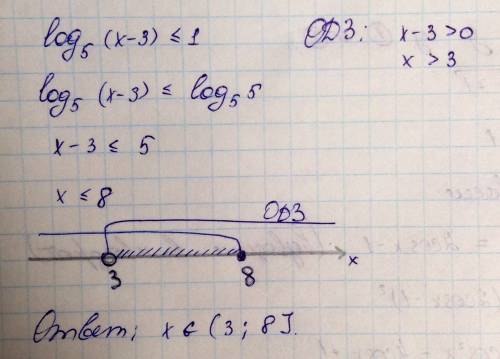 log₅ (x-3) ≤ 1
ОДЗ: x-3 >0
x > 3
log₅ (x-3) ≤ log₅ 5
x-3 ≤ 5
x ≤ 8
ОДЗ
3 8 x
Ответ: x ∈ (3 ; 8].